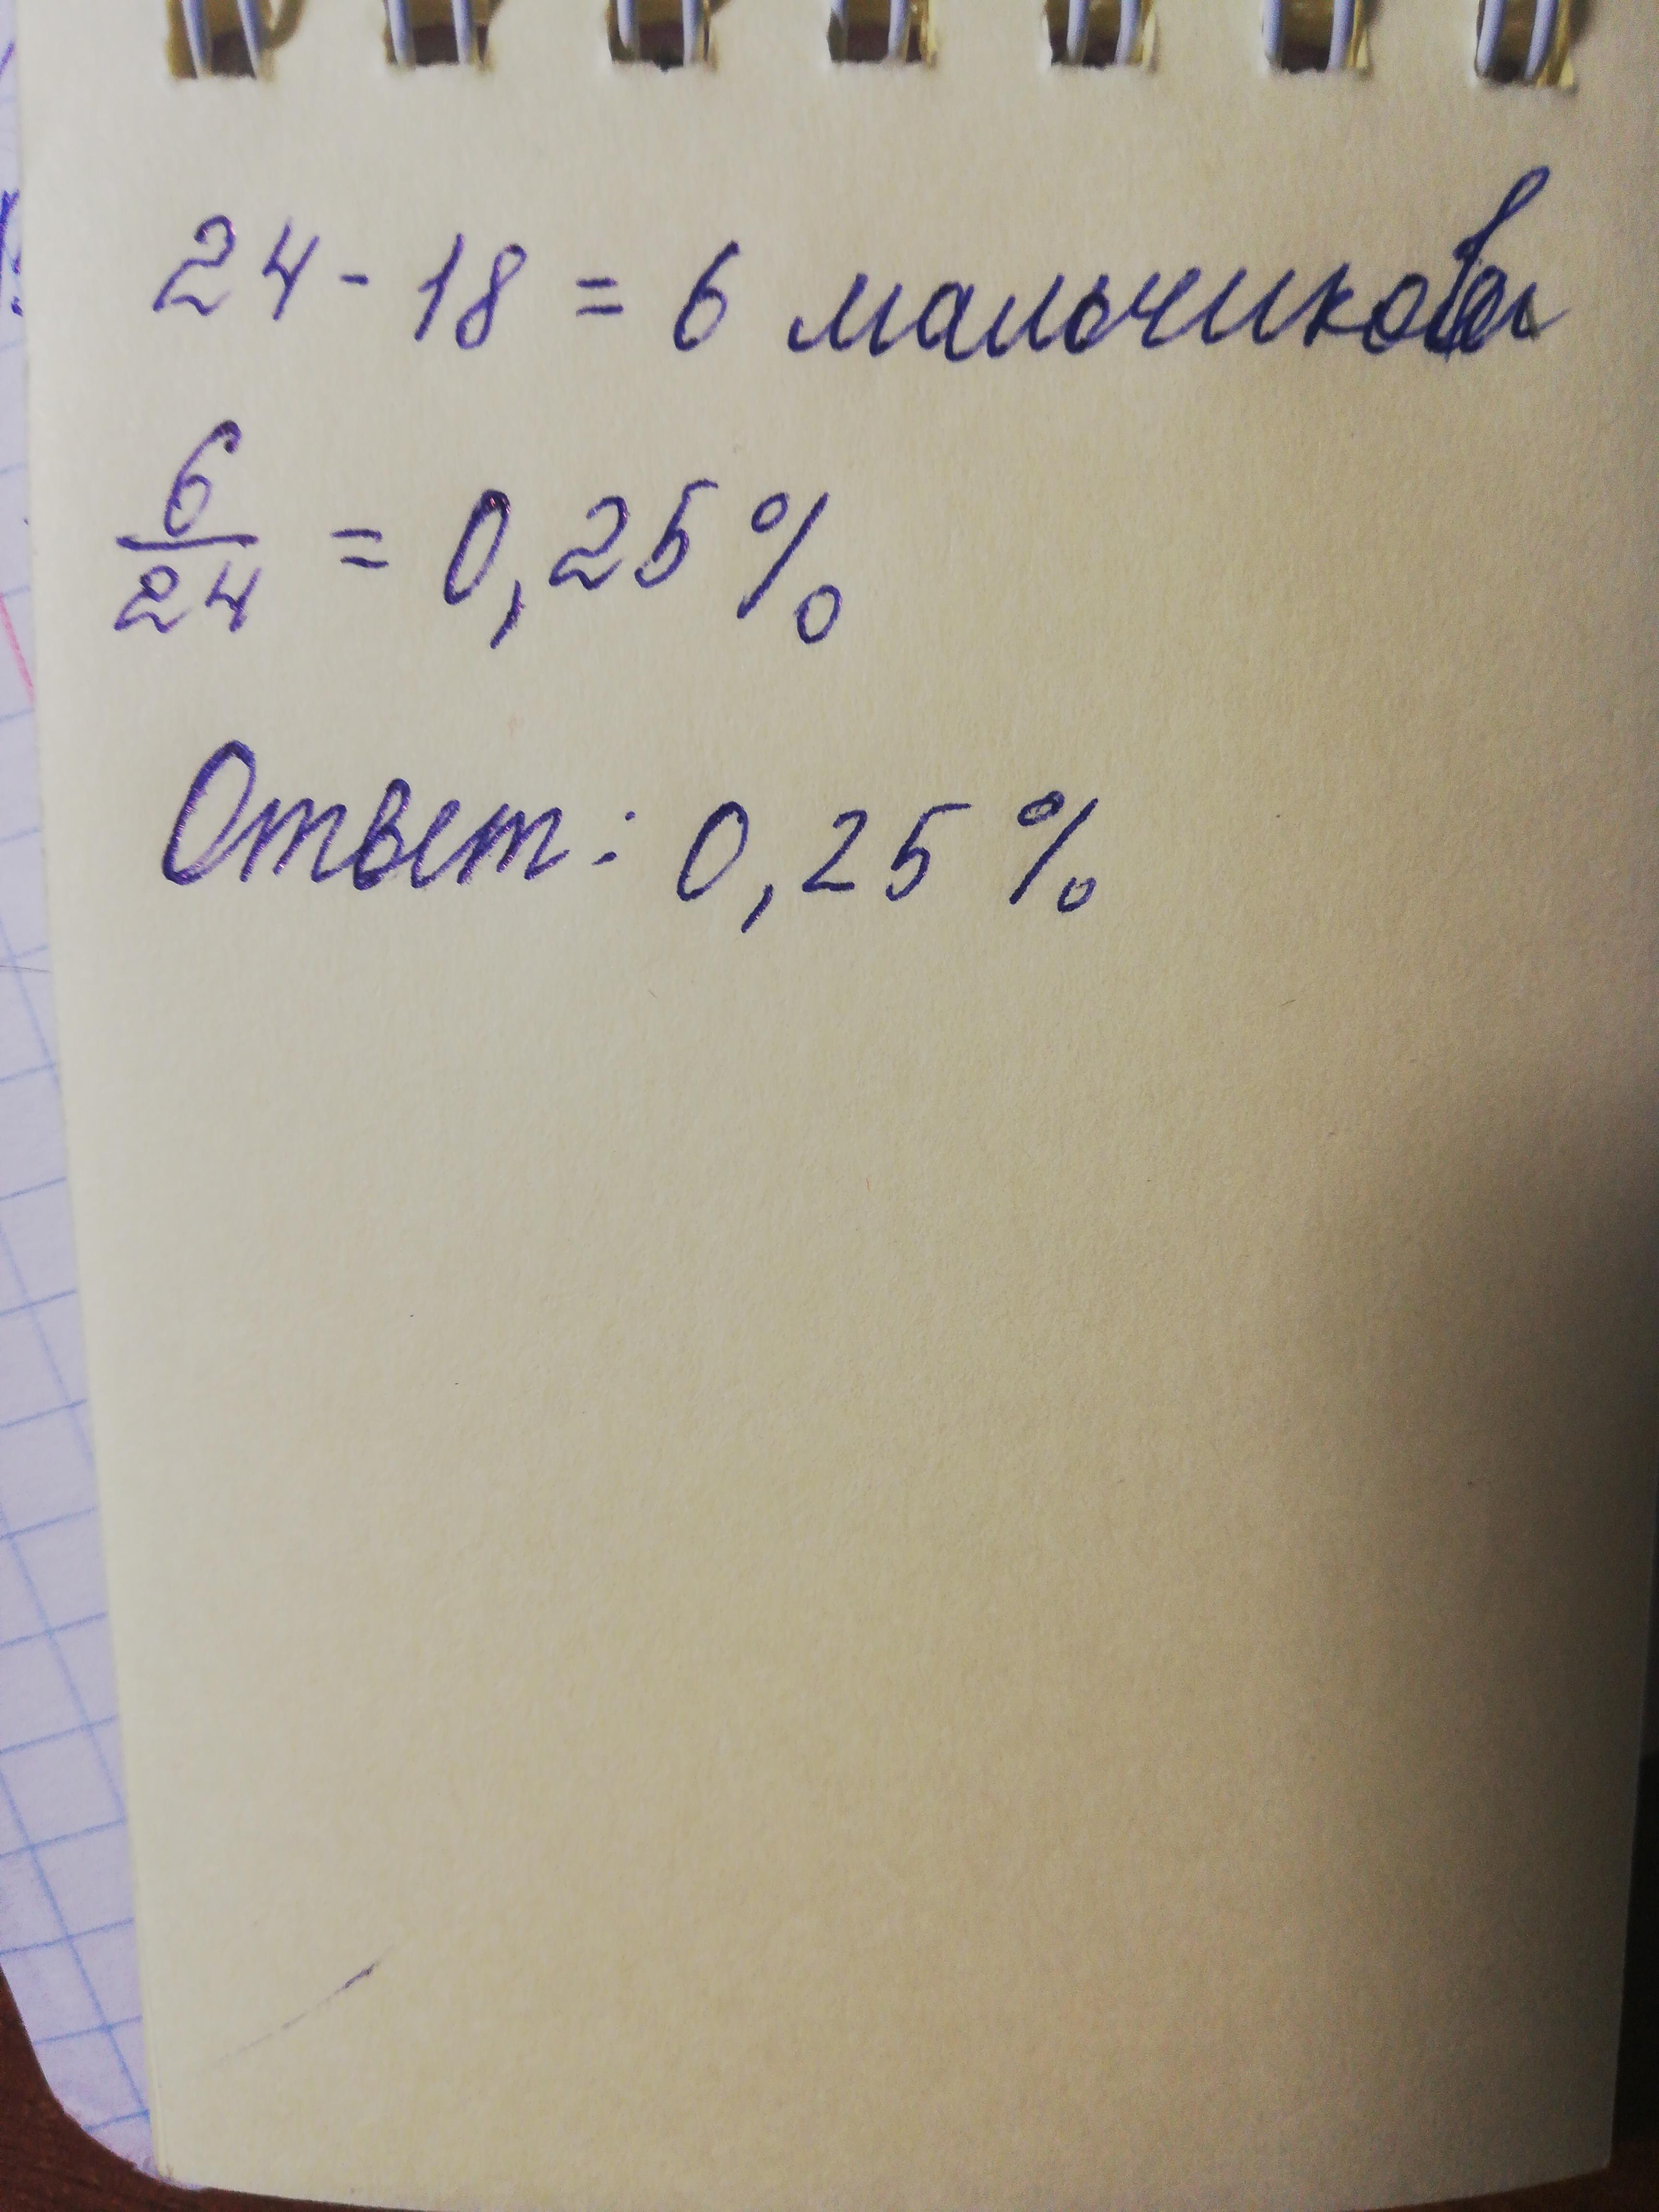 24 - 18 = 6 мальчиков
6/24 = 0,25 %
Ответ: 0,25 %